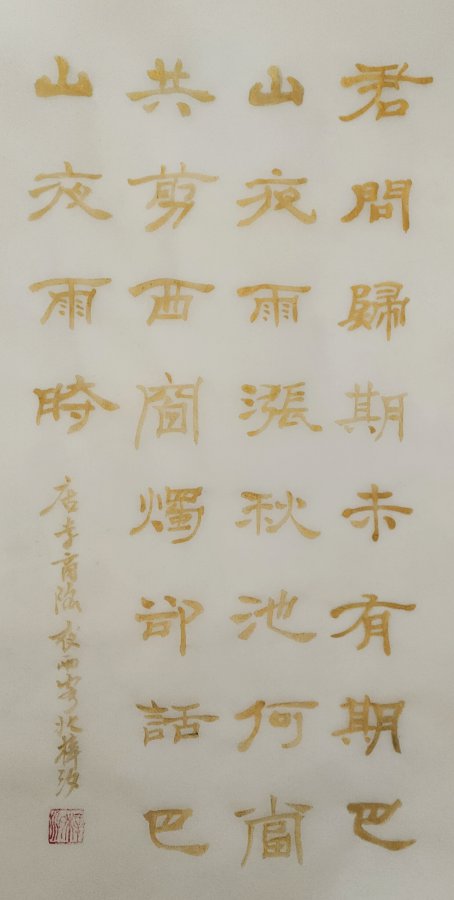 君問歸期未有期巴
山夜雨漲秋池何當
共剪西窗燭卻話巴
山夜雨時
唐李商隐夜雨寄北梓汐